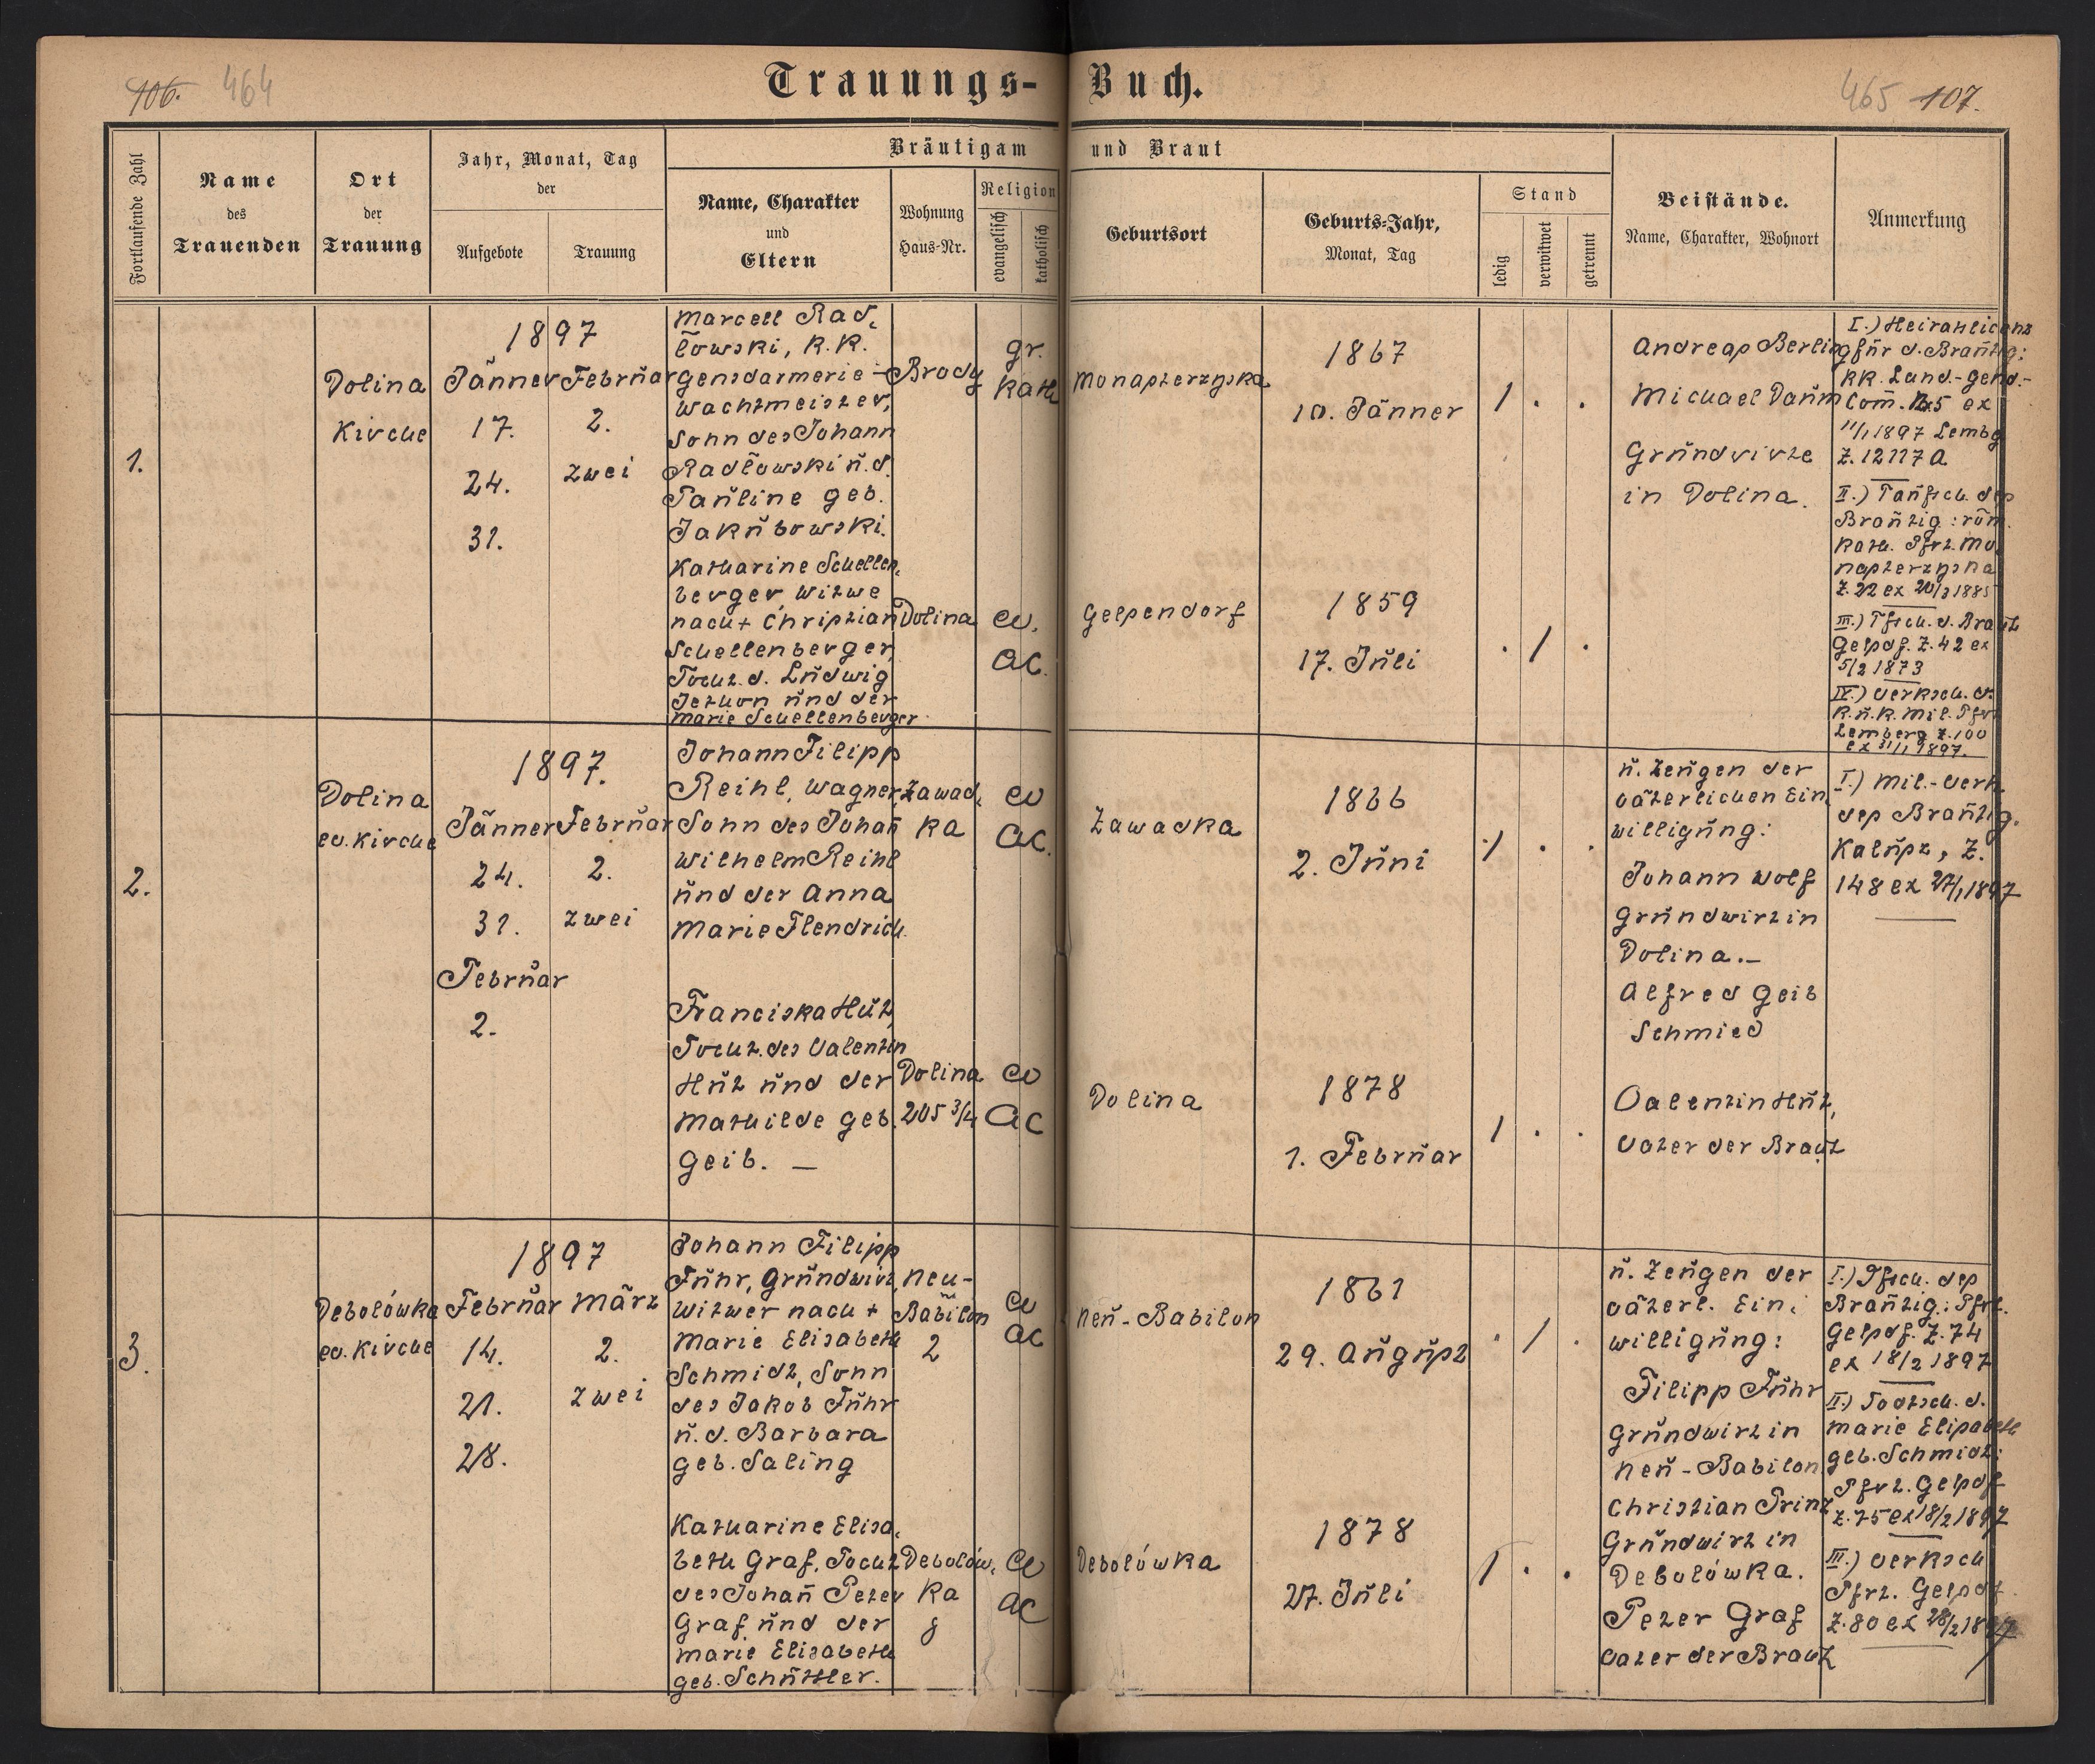 106. 464
Trauungs-Buch.
465 107.
Fortlaufende Zahl
Name
des
Trauenden
Ort
der
Trauung
Jahr, Monat, Tag
der
Aufgebote
Trauung
Bräutigam und Braut
Name, Charakter
und
Eltern
Wohnung
Haus-Nr.
Religion
evangelisch
katholisch
Geburtsort
Geburts-Jahr,
Monat, Tag
Stand
ledig
verwitwet
getrennt
Beistände.
Name, Charakter, Wohnort
Anmerkung
1.
Dolina
Kirche
1897
Jänner
17.
24.
31.
Februar
2.
zwei
Marcell Rad,
łowski, K. K.
Gensdarmerie-
wachtmeister,
Sohn des Johann
Radłowski u. d.
Pauline geb.
Jakubowski.
Brody
gr.
Kath
Monasterzyska
1867
10. Jänner
1 . .
Katharine Schellen,
berger Witwe
nach + Christian
Schellenberger,
Tocht. d. Ludwig
Jethon und der
Marie Schellenberger
Dolina
ev.
AC.
Gelsendorf
1859
17. Juli
. 1 .
Andreas Berling
Michael Daum
Grundwirte
in Dolina.
I.) Heirathlicenz
für d. Bräutig:
KK. Land.-Gend.-
Com. No 5 ex
11/1 1897 Lembg
Z. 12117 A
II.) Taufsch. des
Bräutig: röm.
Kath. Pfrt. Mo,
nasterzyska
Z. 22 ex 20/2 1885
III.) Tfsch. d. Braut
Gelsdf. Z. 42 ex
5/2 1873
IV.) Verksch. d.
K. u. K. Mil. Pfrt
Lemberg Z. 100
ex 31/1 1897.
2.
Dolina
ev. Kirche
1897.
Jänner
24.
31.
Februar
2.
Februar
2.
zwei
Johann Filipp
Reihl, Wagner
Sohn des Johan̄
Wilhelm Reihl
und der Anna
Marie Flendrich
Zawad,
ka
ev
AC.
Zawadka
1866
2. Juni
1 . .
Franciska Hut,
Tocht. des Valentin
Hut und der
Mathilde geb.
Geib. —
Dolina
205 3/4
ev
AC
Dolina
1878
1. Februar
1 . .
u. Zeugen der
väterlichen Ein,
willigung:
Johann Wolf
Grundwirt in
Dolina.—
Alfred Geib
Schmied
Valentin Hut,
Vater der Braut
I.) Mil.-Verk.
des Bräutig.
Kalusz, Z.
148 ex 27/1 1897
3.
Debolówka
ev. Kirche
1897
Februar
14.
21.
28.
März
2.
zwei
Johann Filipp
Fuhr, Grundwirt,
Witwer nach +
Marie Elisabeth
Schmidt, Sohn
des Jakob Fuhr
u. d. Barbara
geb. Saling
Neu-
Babilon
2
ev
AC
Neu-Babilon
1861
29. August
. 1 .
Katharine Elisa,
beth Graf, Tocht
des Johan̄ Peter
Graf und der
Marie Elisabeth
geb. Schüttler.
Debolów,
ka
8
ev
AC
Debolówka
1878
27. Juli
1 . .
u. Zeugen der
väterl. Ein,
willigung:
Filipp Fuhr
Grundwirt in
Neu-Babilon
Christian Prinz
Grundwirt in
Debolówka.
Peter Graf
Vater der Braut
I.) Tfsch. des
Bräutig: Pfrt.
Gelsdf. Z. 74
ex 18/2 1897
II.) Todtsch. d.
Marie Elisabeth
geb. Schmidt:
Pfrt. Gelsdf
Z. 75 ex 18/2 1897
III.) Verksch
Pfrt. Gelsdf
Z. 80 ex 28/2 1897